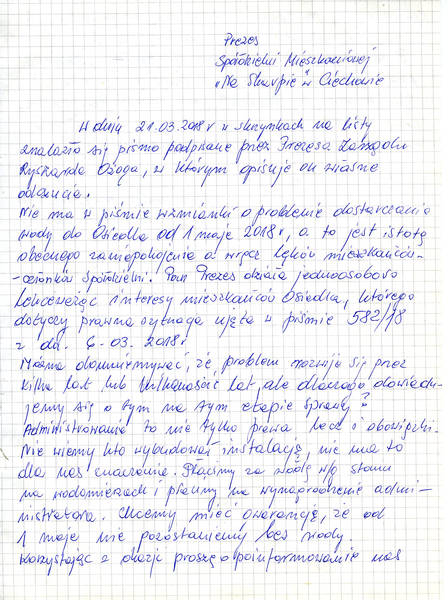 Prezes
Spółdzielni Mieszkaniowej
"Na Skarpie" w Ciechowie
W dniu 21.03.2018 r w skrzynkach na listy
znalazło się pismo podpisane przez Prezesa Zarządu
Ryszarda Ożoga, w którym opisuje on własne
odczucia.
Nie ma w piśmie wzmianki o problemie dostarczania
wody do Osiedla od 1 maja 2018 r, a to jest istotą
obecnego zaniepokojenia a wręcz lęków mieszkańców-
-członków Spółdzielni. Pan Prezes działa jednoosobowo
lekceważąc interesy mieszkańców Osiedla, którego
dotyczy prawna sytuacja ujęta w piśmie 582/18
z dn. 6-03.2018 r
Można domniemywać, że problem rozwija się przez
kilka lat lub kilkanaście lat, ale dlaczego dowiadu-
jemy się o tym na tym etapie sprawy?
Administrowanie to nie tylko prawa lecz i obowiązki.
Nie wiemy kto wybudował instalację, nie ma to
dla nas znaczenia. Płacimy za wodę w/g stanu
na wodomierzach i płacimy na wynagrodzenie admi-
nistratora. Chcemy mieć gwarancję, że od
1 maja nie pozostaniemy bez wody.
Korzystając z okazji proszę o poinformowanie nas